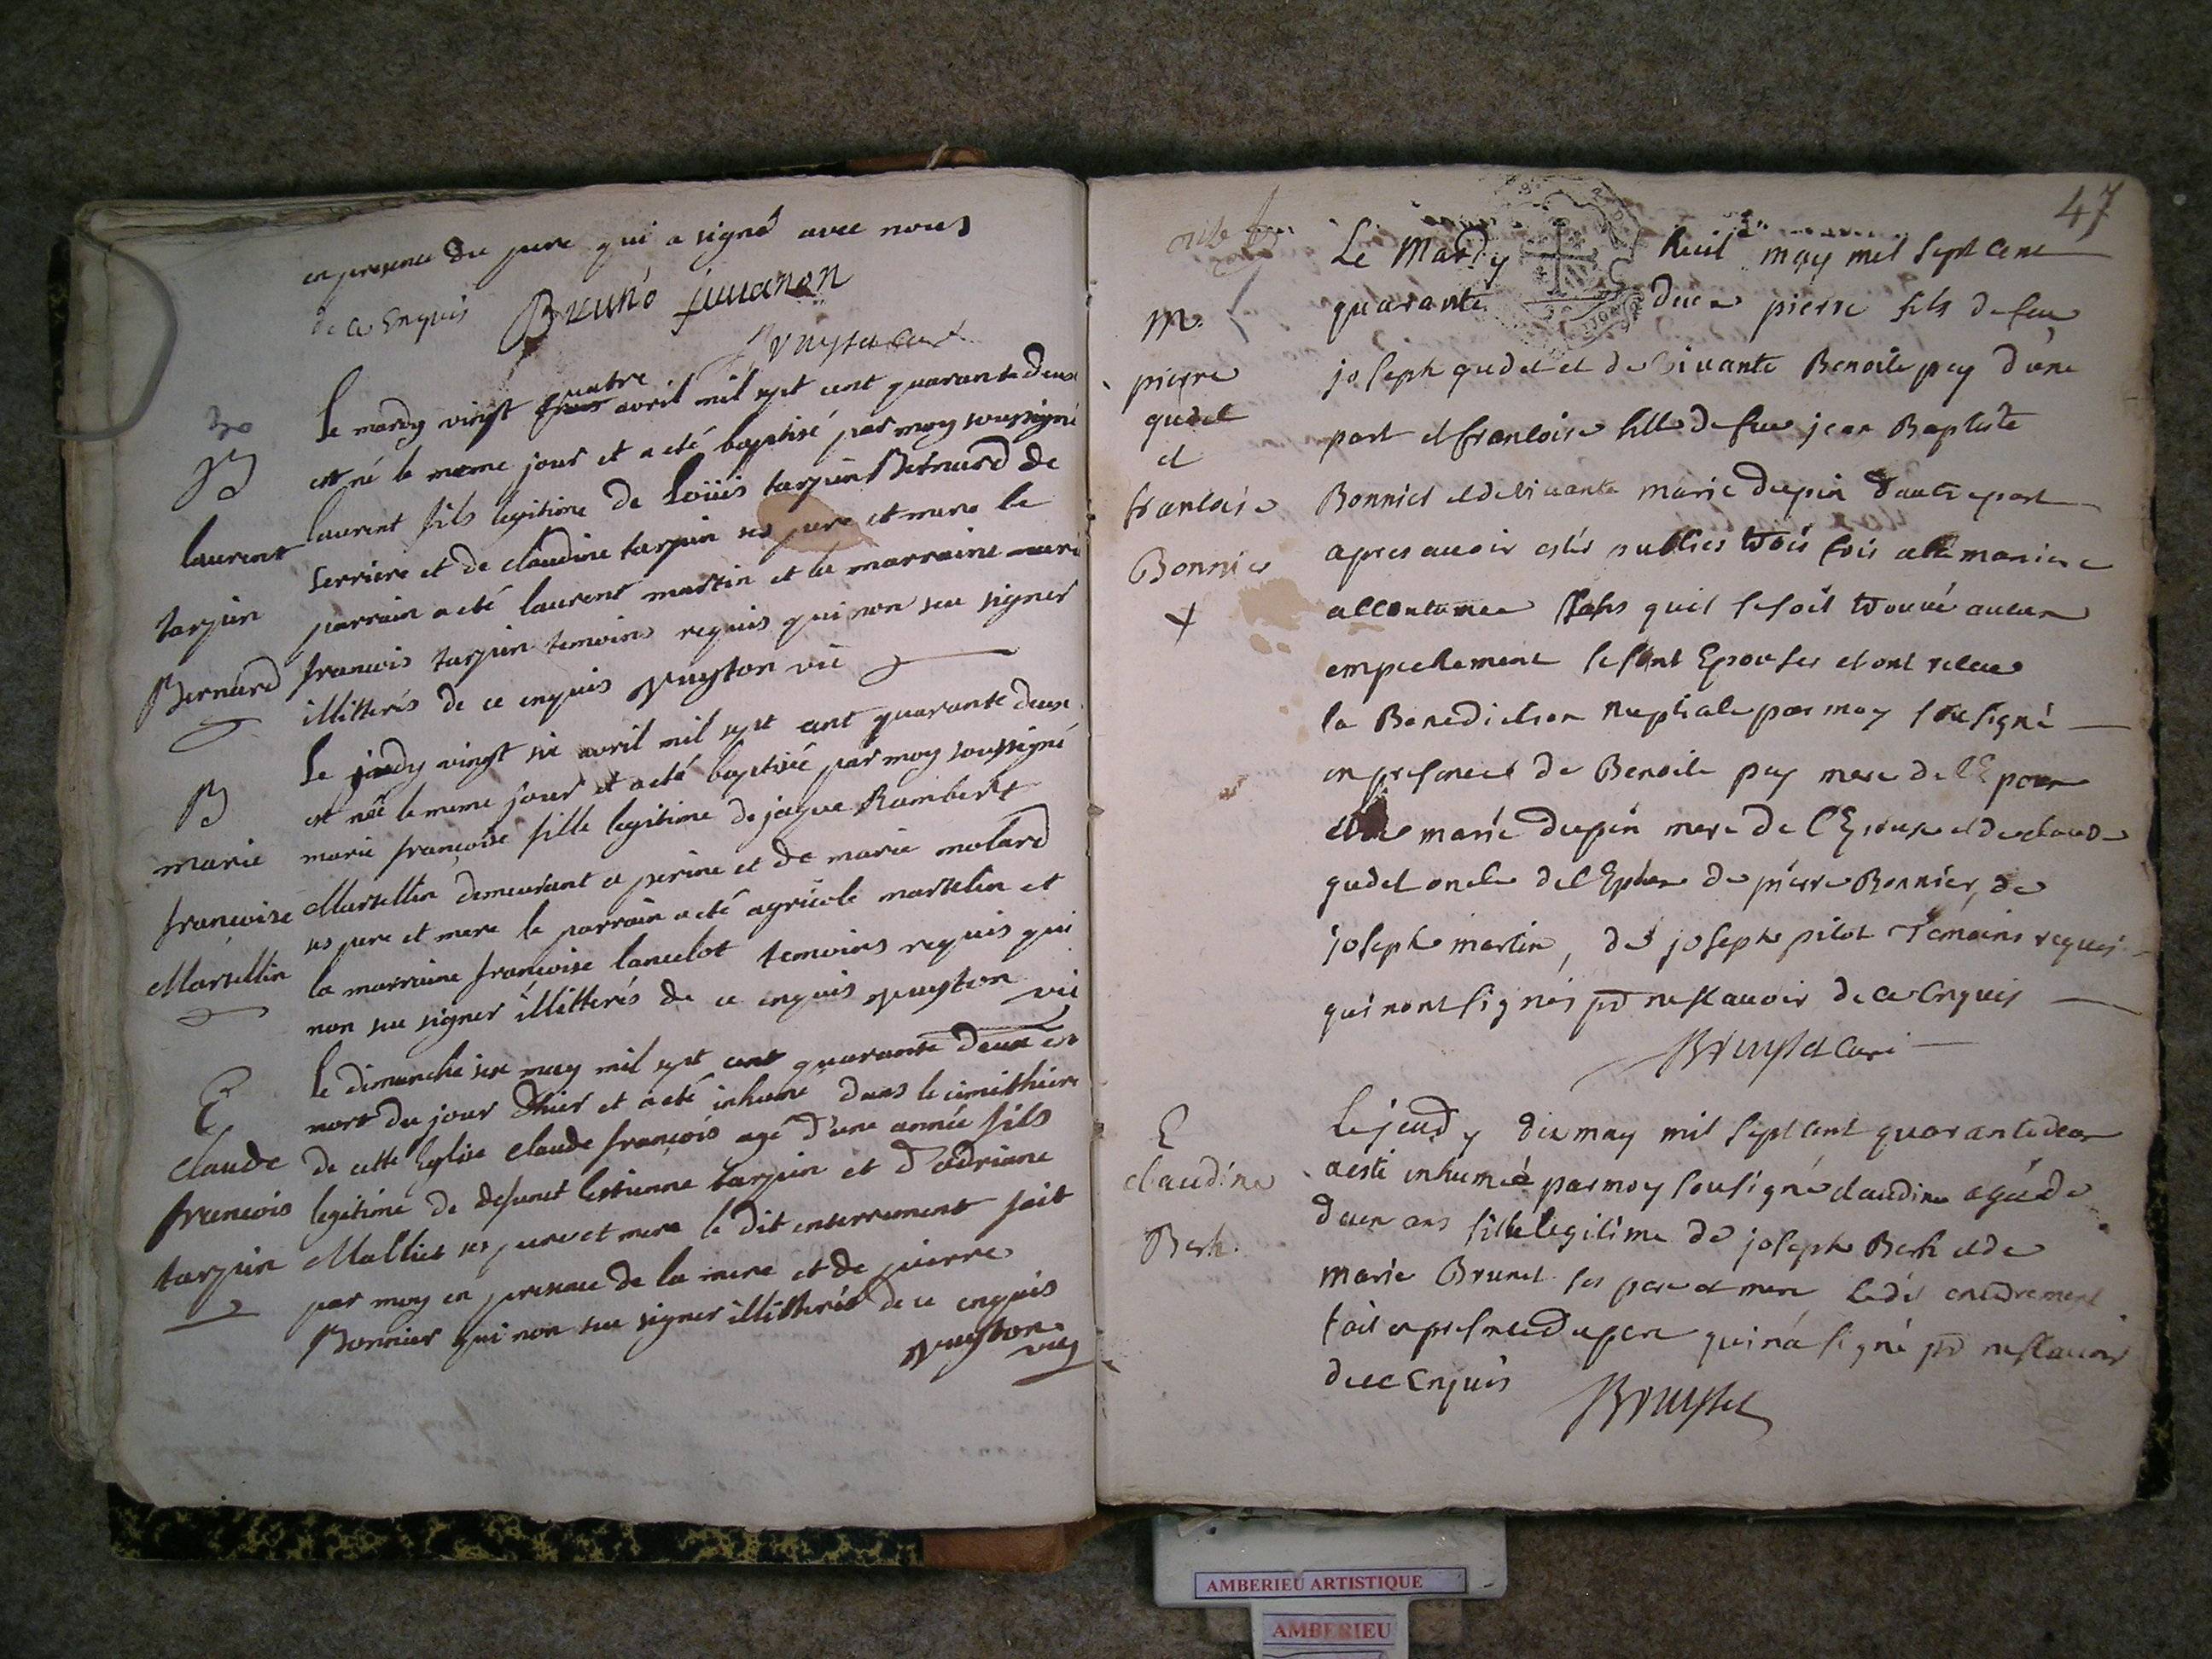 en presence du pere qui a signé avec nous
de ce Enquis Bruno juuanon
30
B
laurent
tarpin
Bernard
le mardy vingt quatre avril mil sept cent quarante deux
est né le meme jour et a eté baptisé par moy soussigné
laurent fils legitime de Loüis tarpin Bernard de
serriere et de claudine tarpin ses pere et mere le
parrain a eté laurent martin et la marraine marie
francois tarpin temoins requis qui non sceu signer
illitterés de ce enquis puyston vic
B
marie
françoise
Martellin
le jeudy vingt six avril mil sept cent quarante deux
est née le meme jour et a eté baptisée par moy soussigné
marie françoise fille legitime de jaque Rambert
Martellin demeurant a perine et de marie molard
ses pere et mere le parrain a eté agricole martelin et
la marraine françoise lancelot temoins requis qui
non sceu signer illitterés de ce enquis puyston vic
E
claude
francois
tarpin
le dimanche six may mil sept cent quarante deux est
mort du jour d'hier et a eté inhumé dans le cimithiere
de cette Eglise claude françois agé d'une année fils
legitime de defunct Estienne tarpin et d'Adriane
Malliet ses pere et mere le dit enterrement fait
par moy en presence de la mere et de pierre
Bonnier qui non sceu signer illitterés de ce enquis
puyston vic
47
M
pierre
gudet
et
francoise
Bonnier
+
Le Mardy huit may mil sept cent
quarante deux pierre fils de feu
joseph gudet et de vivante Benoite pey d'une
part et francoise fille de feu jean Baptiste
Bonnier et de vivante marie dupin d'autre part
apres avoir estés publiés trois fois a la maniere
accoutumee sans quil se soit trouvé aucun
empechement se sont Epousés et ont receu
la Benediction nuptiale par moy sousigné
en presence de Benoite pey mere de l'Epoux
et de marie dupin mere de l'Epouse et de claude
gudet oncle de l'Epoux de pierre Bonnier, de
joseph martin, de joseph pilot Témoins requis
qui nont signés pr ne sçavoir de ce Enquis
Bruyset curé
E
claudine
Berh.
Le jeudy dix may mil sept cent quarante deux
a esté inhumée par moy sousigné claudine agée de
deux ans fille legitime de joseph Berh et de
marie Brunet ses pere et mere le dit enterrement
fait en presence du pere qui n'a signé pr ne sçavoir
de ce Enquis
Bruyset
AMBERIEU ARTISTIQUE
AMBERIEU